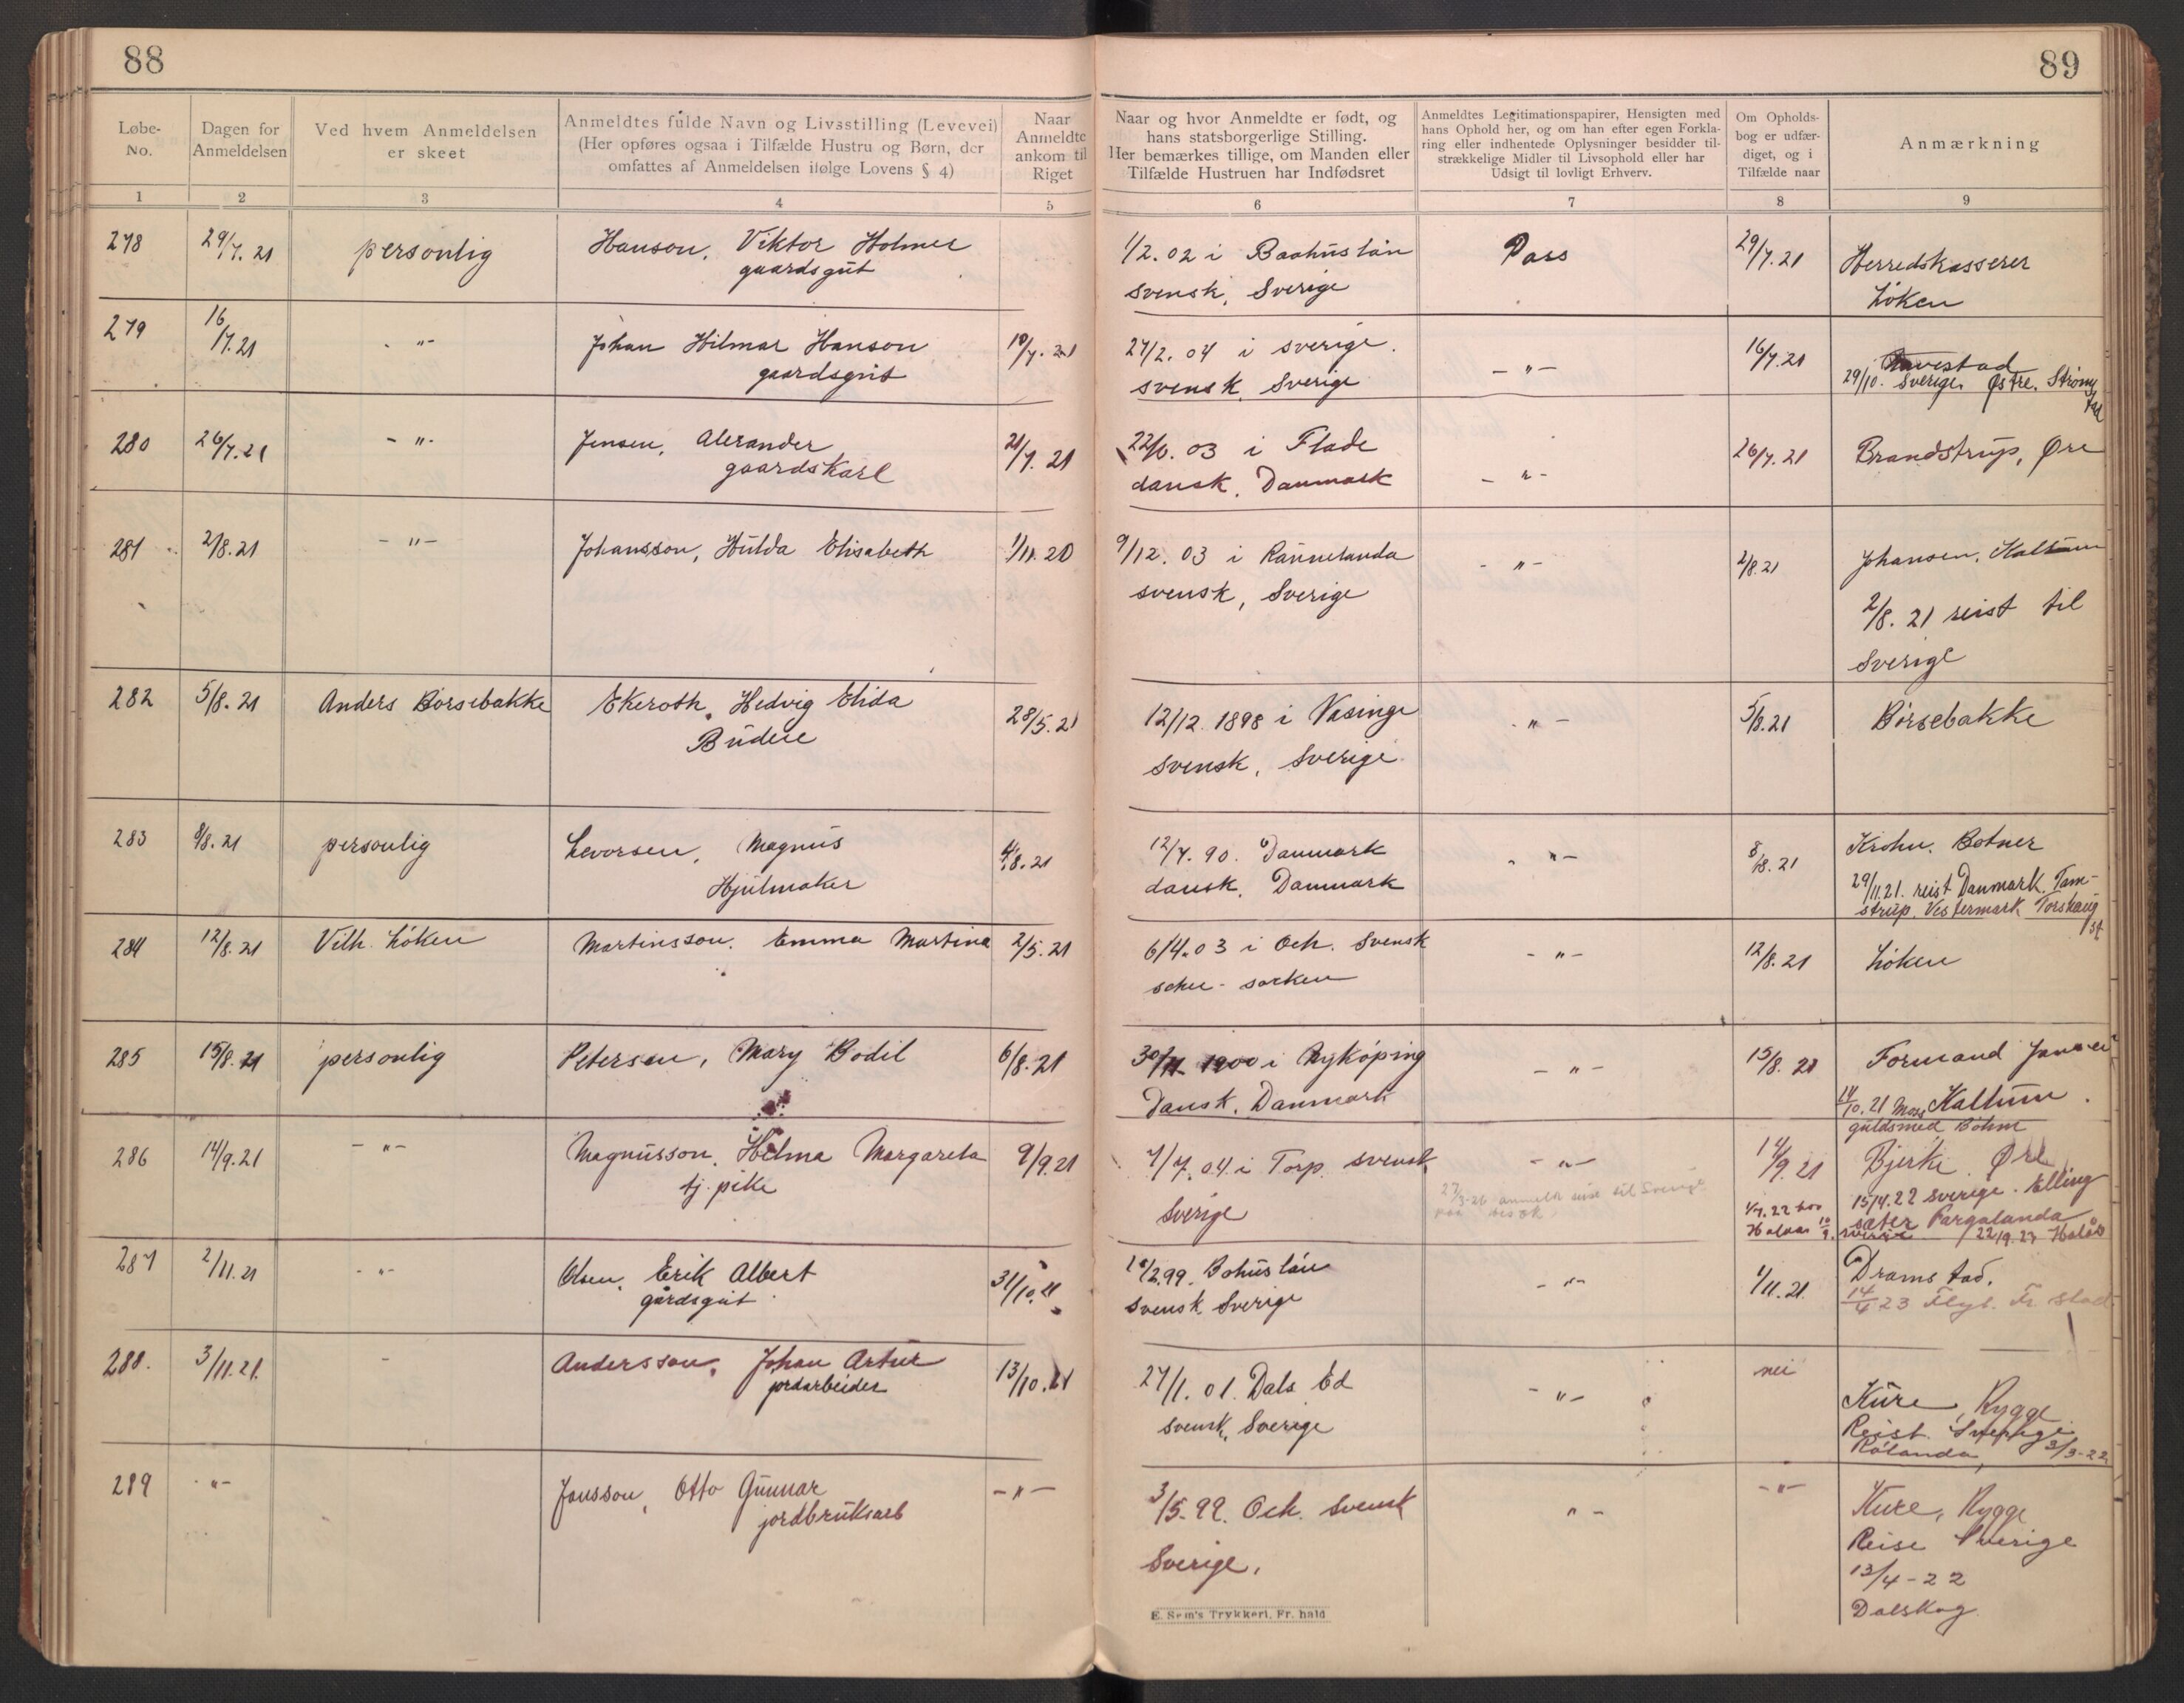 88
89
Løbe-No.
Dagen for Anmeldelsen
Ved hvem Anmeldelsen er skeet
Anmeldtes fulde Navn og Livsstilling (Levevei)
(Her opføres ogsaa i Tilfælde Hustru og Børn, der
omfattes af Anmeldelsen ifølge Lovens § 4)
Naar Anmeldte ankom til Riget
Naar og hvor Anmeldte er født, og
hans statsborgerlige Stilling.
Her bemærkes tillige, om Manden eller
Tilfælde Hustruen har Indfødsret
Anmeldtes Legitimationspapirer, Hensigten med
hans Ophold her, og om han efter egen Forkla-
ring eller indhentede Oplysninger besidder til-
strækkelige Midler til Livsophold eller har
Udsigt til lovligt Erhverv.
Om Opholds-
bog er udfær-
diget, og i
Tilfælde naar
Anmærkning
1 2 3 4 5 6 7 8 9
278 29/7.21 personlig Hanson, Viktor Holmer 1/2.02 i Baahuslän Pass 29/7.21 Herredskasserer
gaardsgut svensk, Sverige Løken
279 16/7.21 - " - Johan Hilmar Hanson 10/7.21 27/2.04 i sverige. - " - 16/7.21
gaardsgut svensk, Sverige 29/10. Sverige. Østre. Strömstad
280 26/7.21 - " - Jensen, Alexander 21/7.21 22/6.03 i Flade - " - 26/7.21 Brandstrup, Øre
gaardskarl dansk, Danmark
281 2/8.21 - " - Johansson, Hulda Elisabeth 1/11.20 9/12.03 i Rännelanda - " - 2/8.21 Johansen, Kaltum
svensk, Sverige 2/8.21 reist til
Sverige
282 5/8.21 Anders Børsebakke Ekeroth, Hedvig Elida 28/5.21 12/12.1898 i Vasinge - " - 5/8.21 Børsebakke
Budeie svensk, Sverige
283 8/8.21 personlig Levorsen, Magnus 4/8.21 12/7.90. Danmark - " - 8/8.21 Krohn. Botner
Hjulmaker dansk, Danmark 29/11.21. reist Danmark. Tam-
strup. Vestermark
284 12/8.21 Vilh. Løken Martinsson, Emma Martina 2/5.21 6/4.03 i Och. Svensk - " - 12/8.21 Løken
285 15/8.21 personlig Petersen, Mary Bodil 6/8.21 30/11 1900 i Nykøping - " - 15/8.21 Formand
Dansk, Danmark 14/10.21 Moss Kaltum
guldsmed Bøhm
286 14/9.21 - " - Magnusson, Helma Margareta 9/9.21 7/7.04 i Torp. svensk - " - 14/9.21 Bjerke, Øre
tj. pike Sverige 27/3-26 anmeldt reist til Sverige 15/4.22 sverige. Elling
paa besøk sæter Fargalanda
22/9.23
287 2/11.21 - " - Olsen, Erik Albert 31/10.21 Bohuslän - " - 1/11.21. Dramstad.
gårdsgut svensk, Sverige 14/4 23 Flyt. Fr. stad
288. 3/11.21. - Andersson, Johan Artur 13/10.21 27/1.01. Dals Ed - " - nei Kure, Rygge
jordarbeider svensk, Sverige Reist Sverige
Rölanda, 3/3-22
289 - " - Jonsson, Otto Gunnar - " - 3/5-99. Och. Svensk " - - " - Kure, Rygge
jordbruksarb Sverige. Reise Sverige
13/4-22
Dalskog
E. Sem's Trykkeri, Fr.hald